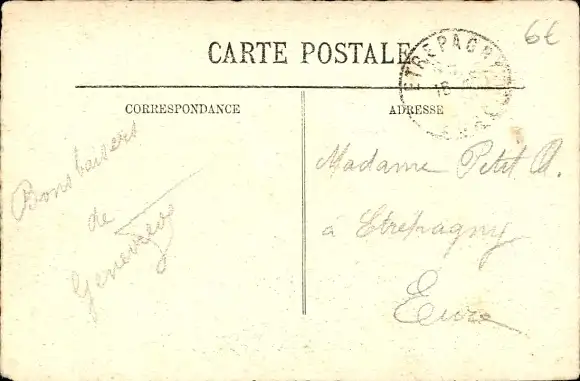 6€
CARTE POSTALE
ETREPAGNY
18
CORRESPONDANCE
ADRESSE
Bons baisers
de
Geneviève
Madame Petit A.
à Etrépagny
Eure